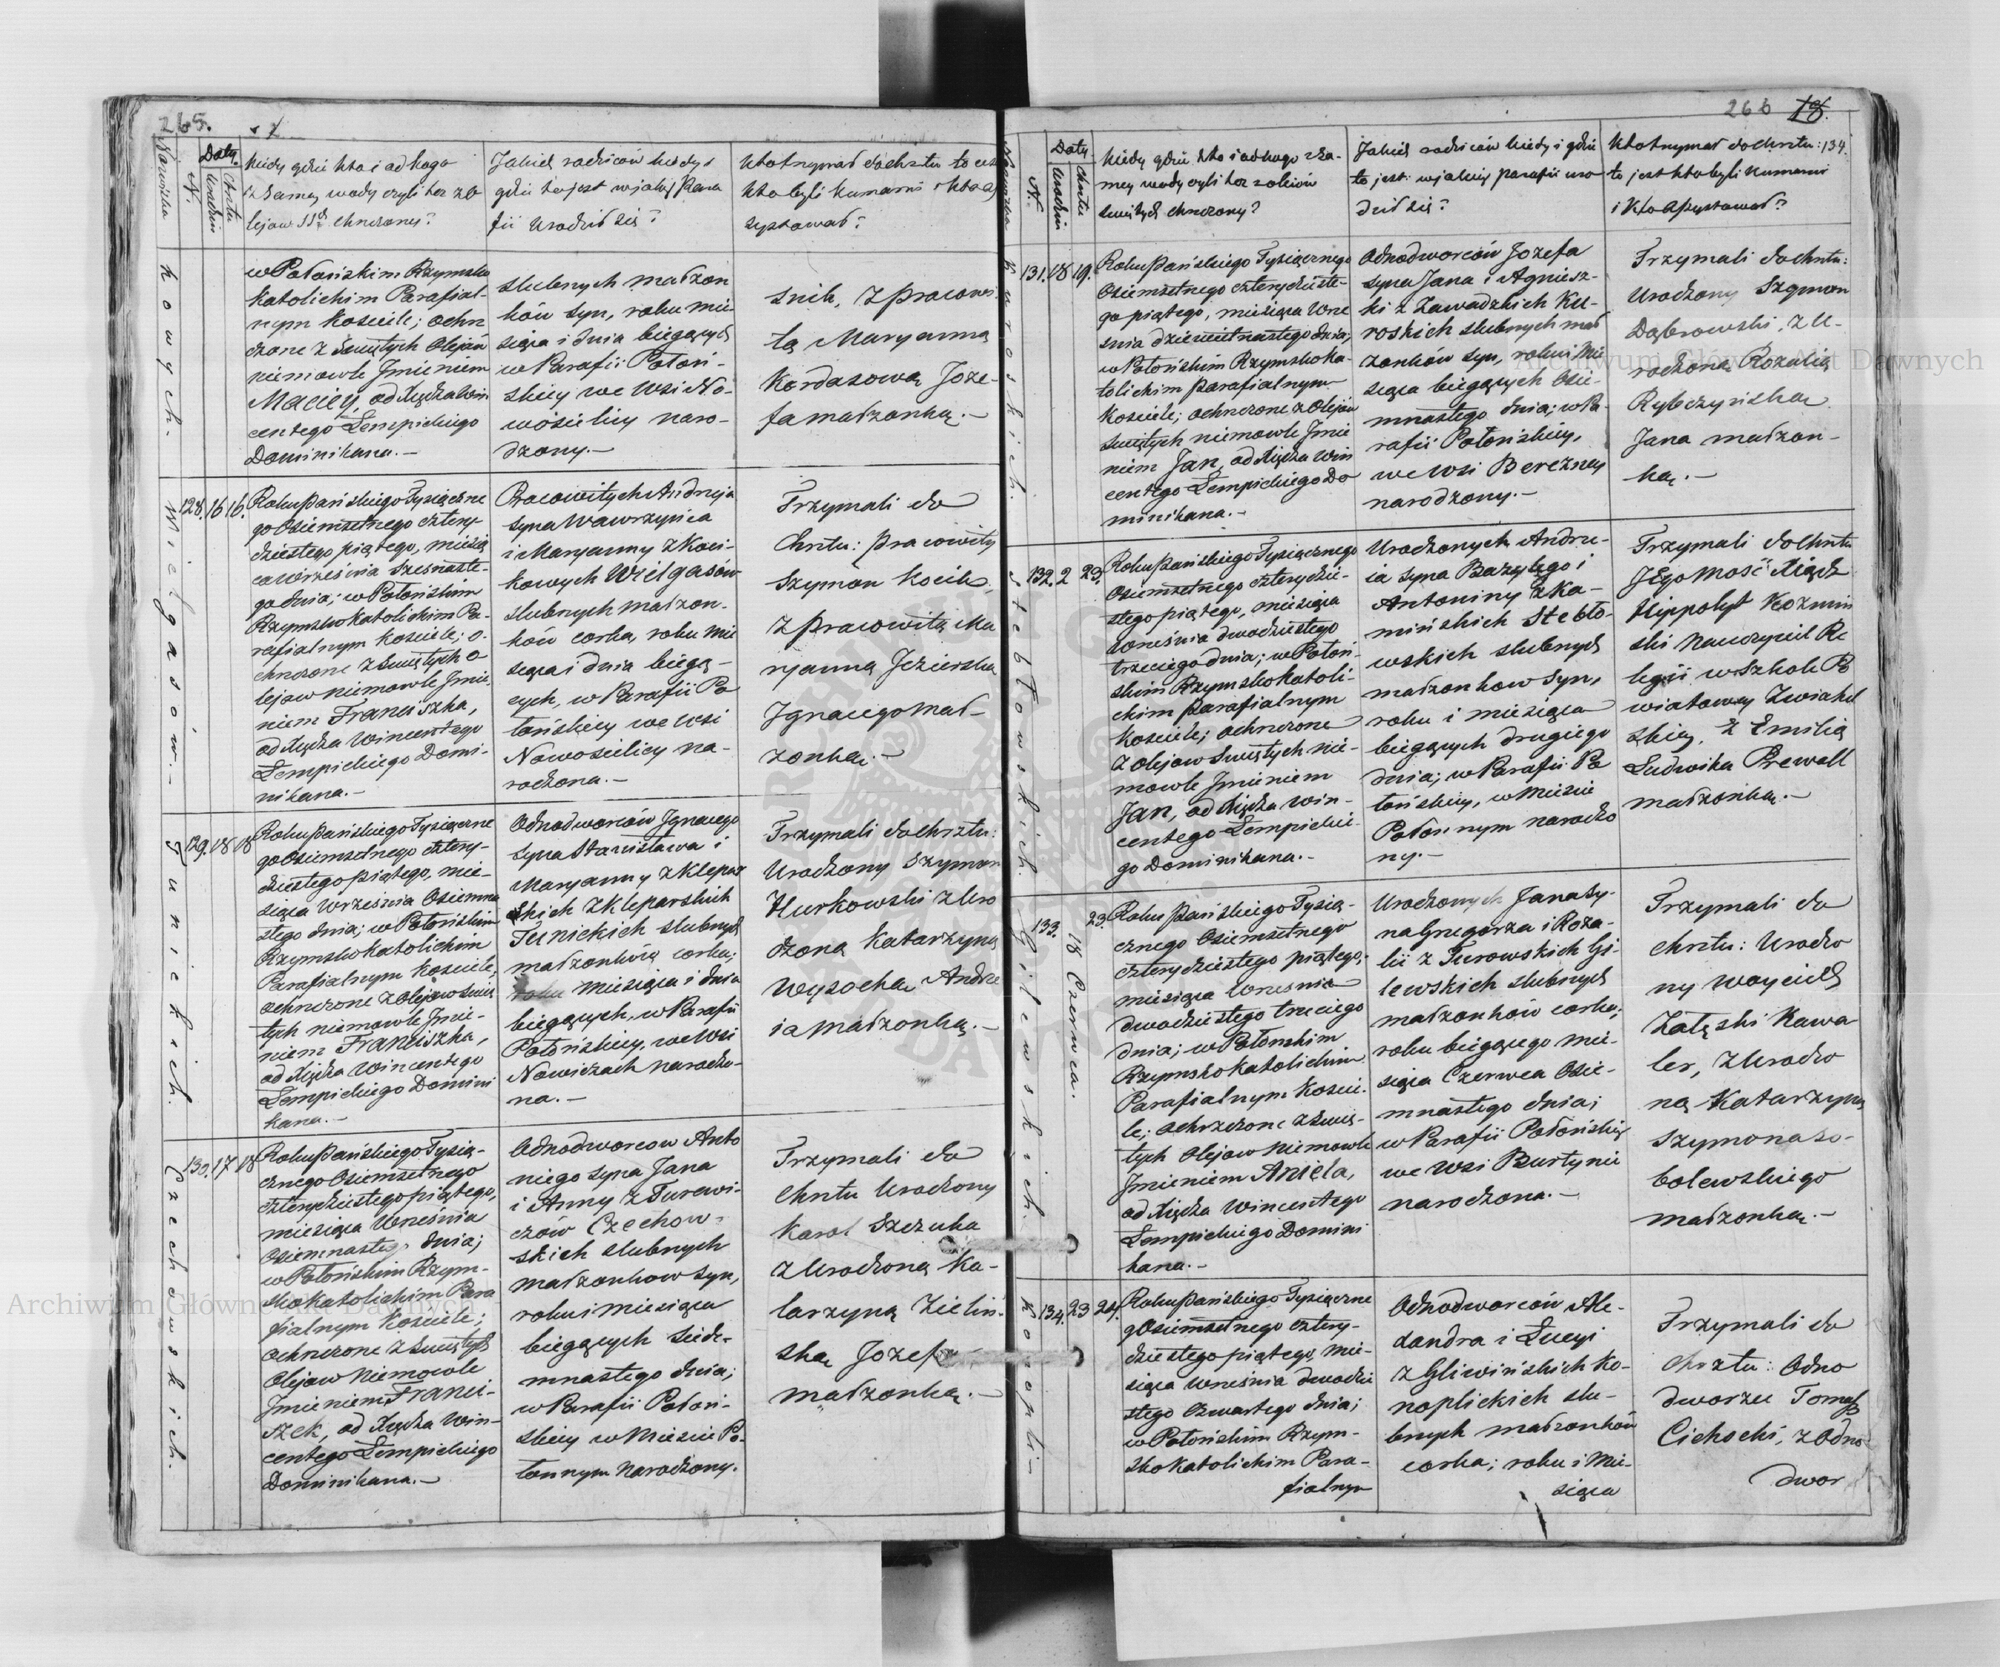 265.
Nazwiska
N.
Daty.
Urodzin
Chrztu
Kiedy gdzie kto i od kogo
z samey wody czyli tez z O
lejow SSch chrzczony?
Jakich rodziców kiedy i
gdzie to jest w jakiey Para
fii urodził się?
Kto trzymał do chrztu to jest
kto byli kumami i kto as
systował?
kowych.
w Połońskim Rzymsko
Katolickim Parafial-
nym Kosciele; ochrz
czone z Swiętych Olejow
niemowle Jmieniem
Maciey, od Xiędza Win
centego Łempickiego
Dominikana.-
slubnych małżon
ków syn, roku mie
siąca i dnia biegących
w Parafii Połoń-
skiey we wsi No-
wosielicy naro-
dzony.-
snik, z pracowi
tą Maryanną
Kordasową Joze-
fa małzonką.-
Wielgasów.-
128. 16 16.
Roku Pańskiego Tysiączne
go Osiemsetnego cztery-
dziestego piątego, miesią
ca Wrzesnia Szesnaste-
go dnia; w Połońskim
Rzymsko katolickim Pa-
rafialnym kosciele; o-
chrzczone z Swiętych O
lejow niemowle Jmie-
niem Franciszka,
od Xiędza Wincentego
Łempickiego Domi-
nikana.-
Pracowitych Andrzeja
syna Wawrzynca
i Maryanny z Koci-
kowych Wielgasów
slubnych małzon-
ków corka, roku mie
siąca i dnia biegą-
cych, w Parafii Po
łońskiey we wsi
Nowosielicy na-
rodzona.-
Trzymali do
Chrztu: pracowity
Szymon Kocik,
z pracowitą Ma
ryanną Jezierską
Jgnacego mał-
zonką.-
Tunickich.
129. 18 18
Roku Pańskiego Tysiączne
go Osiemsetnego cztery-
dziestego piątego, mie-
siąca Wrzesnia Osiemna
stego dnia; w Połońskim
Rzymsko katolickim
Parafialnym kosciele,
ochrzczone z Olejow Swię
tych niemowle Jmie-
niem Franciszka,
od Xiędza Wincentego
Łempickiego Domini
kana.-
Odnodworców Jgnacego
syna Stanisława i
Maryanny z Klepar
skich z Kleparskich
Tunickich slubnych
małzonków corka;
roku miesiąca i dnia
biegących, w Parafii
Połońskiey, we wsi
Nowiczach narodzo-
na.-
Trzymali do chrztu:
Urodzony Szymon
Hurkowski z Uro
dzoną Katarzyną
Wysocką Andrze
ia małzonką.-
Czechowskich.
130. 17 18
Roku Pańskiego Tysią-
cznego Osiemsetnego
czterydziestego piątego,
miesiąca Wrzesnia
Osiemnastego dnia;
w Połońskim Rzym-
sko Katolickim Para
fialnym Kosciele;
ochrzczone z Swiętych
Olejow niemowle
Jmieniem Franci-
szek, od Xiędza Win-
centego Łempickiego
Dominikana.-
Odnodworcow Anto
niego syna Jana
i Anny z Turewi-
czów Czechow-
skich slubnych
małzonkow syn,
roku i miesiąca
biegących siede-
mnastego dnia;
w Parafii Połoń-
skiey w Miescie Po-
łonnym narodzony.
Trzymali do
chrztu Urodzony
Karol Szczuka
z Urodzoną Ka-
tarzyną Zieliń-
ską Jozefa
małzonką.-
266 18.
Nazwiska
N.
Daty
Urodzin
Chrztu
Kiedy gdzie kto i od kogo z sa-
mey wody czyli tez z oleiow
Swiętych chrzczony?
Jakich rodziców kiedy i gdzie
to jest: w jakiey parafii uro-
dził się?
Kto trzymał do chrztu: 134.
to jest kto byli kumami
i kto assystował?
Kuroskich.
131. 18 19.
Roku Pańskiego Tysiącznego
Osiemsetnego czterydzieste-
go piątego, miesiąca Wrze
snia dziewiętnastego dnia;
w Połońskim Rzymsko Ka-
tolickim parafialnym
Kosciele; ochrzczone z Olejow
Swiętych niemowle Jmie
niem Jan, od Xiędza Win
centego Łempickiego Do
minikana.-
Odnodworców Jozefa
syna Jana i Agniesz-
ki z Zawadzkich Ku-
roskich slubnych mał
zonków syn, roku i mie
siąca biegących Osie-
mnastego dnia; w Pa-
rafii Połońskiey,
we wsi Berezney
narodzony.-
Trzymali do chrztu:
Urodzony Szymon
Dąbrowski, z U-
rodzoną Rozalią
Rybczyńską
Jana małzon-
ką.-
Stebłowskich.
132. 2 23.
Roku Pańskiego Tysiącznego
Osiemsetnego czterydzie-
stego piątego, miesiąca
Wrzesnia dwudziestego
trzeciego dnia; w Połoń-
skim Rzymsko katoli-
ckim parafialnym
Kosciele; ochrzczone
z olejow Swiętych nie-
mowle Jmieniem
Jan, od Xiędza Win-
centego Łempickie-
go Dominikana.-
Urodzonych Andrze-
ia syna Bazylego i
Antoniny z Ka-
mińskich Stebło-
wskich slubnych
małzonkow syn,
roku i miesiąca
biegących drugiego
dnia; w Parafii Po
łońskiey, w Miescie
Połonnym narodzo
ny.-
Trzymali do chrztu
JEgo mość Xiądz
Hippolyt Kozmin
ski Nauczyciel Re
ligii w Szkole Po
wiatowey Zwiahel
skiey, z Emilią
Ludwika Prewall
małzonką.-
Gilewskich.
133. 18 Czerwca. 23.
Roku Pańskiego Tysią-
cznego Osiemsetnego
czterydziestego piątego,
miesiąca Wrzesnia
dwudziestego trzeciego
dnia; w Połońskim
Rzymsko katolickim
Parafialnym Koscie-
le; ochrzczone z Swię-
tych Olejow niemowle
Jmieniem Aniela,
od Xiędza Wincentego
Łempickiego Domini
kana.-
Urodzonych Jana Sy-
na Gregorza i Roza-
lii z Turowskich Gi-
lewskich slubnych
małzonków corka,
roku biegącego mie-
siąca Czerwca Osie-
mnastego dnia;
w Parafii Połońskiey
we wsi Burtynie
narodzona.-
Trzymali do
chrztu: Urodzo
ny Woyciech
Załęski Kawa
ler, z Urodzo
ną Katarzyną
Szymona So-
bolewskiego
małzonką.-
Konopli-
134. 23 24.
Roku Pańskiego Tysiączne
go Osiemsetnego cztery-
dziestego piątego, mie-
siąca Wrzesnia dwudzie
stego czwartego dnia;
w Połońskim Rzym-
sko Katolickim Para-
fialnym
Odnodworców Ale-
xandra i Łucyi
z Gliwińskich Ko-
noplickich slu-
bnych małzonków
corka; roku i mie-
siąca
Trzymali do
chrztu: Odno
dworzec Tomasz
Cichocki, z Odno
dwor
Archiwum Główne Akt Dawnych
Archiwum Główne Akt Dawnych